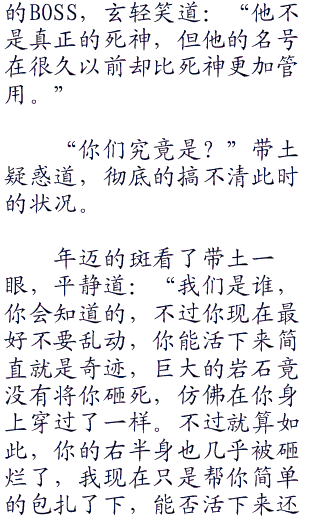 的BOSS，玄轻笑道：“他不
是真正的死神，但他的名号
在很久以前却比死神更加管
用。”
“你们究竟是？”带土
疑惑道，彻底的搞不清此时
的状况。
年迈的斑看了带土一
眼，平静道：“我们是谁，
你会知道的，不过你现在最
好不要乱动，你能活下来简
直就是奇迹，巨大的岩石竟
没有将你砸死，仿佛在你身
上穿过了一样。不过就算如
此，你的右半身也几乎被砸
烂了，我现在只是帮你简单
的包扎了下，能否活下来还